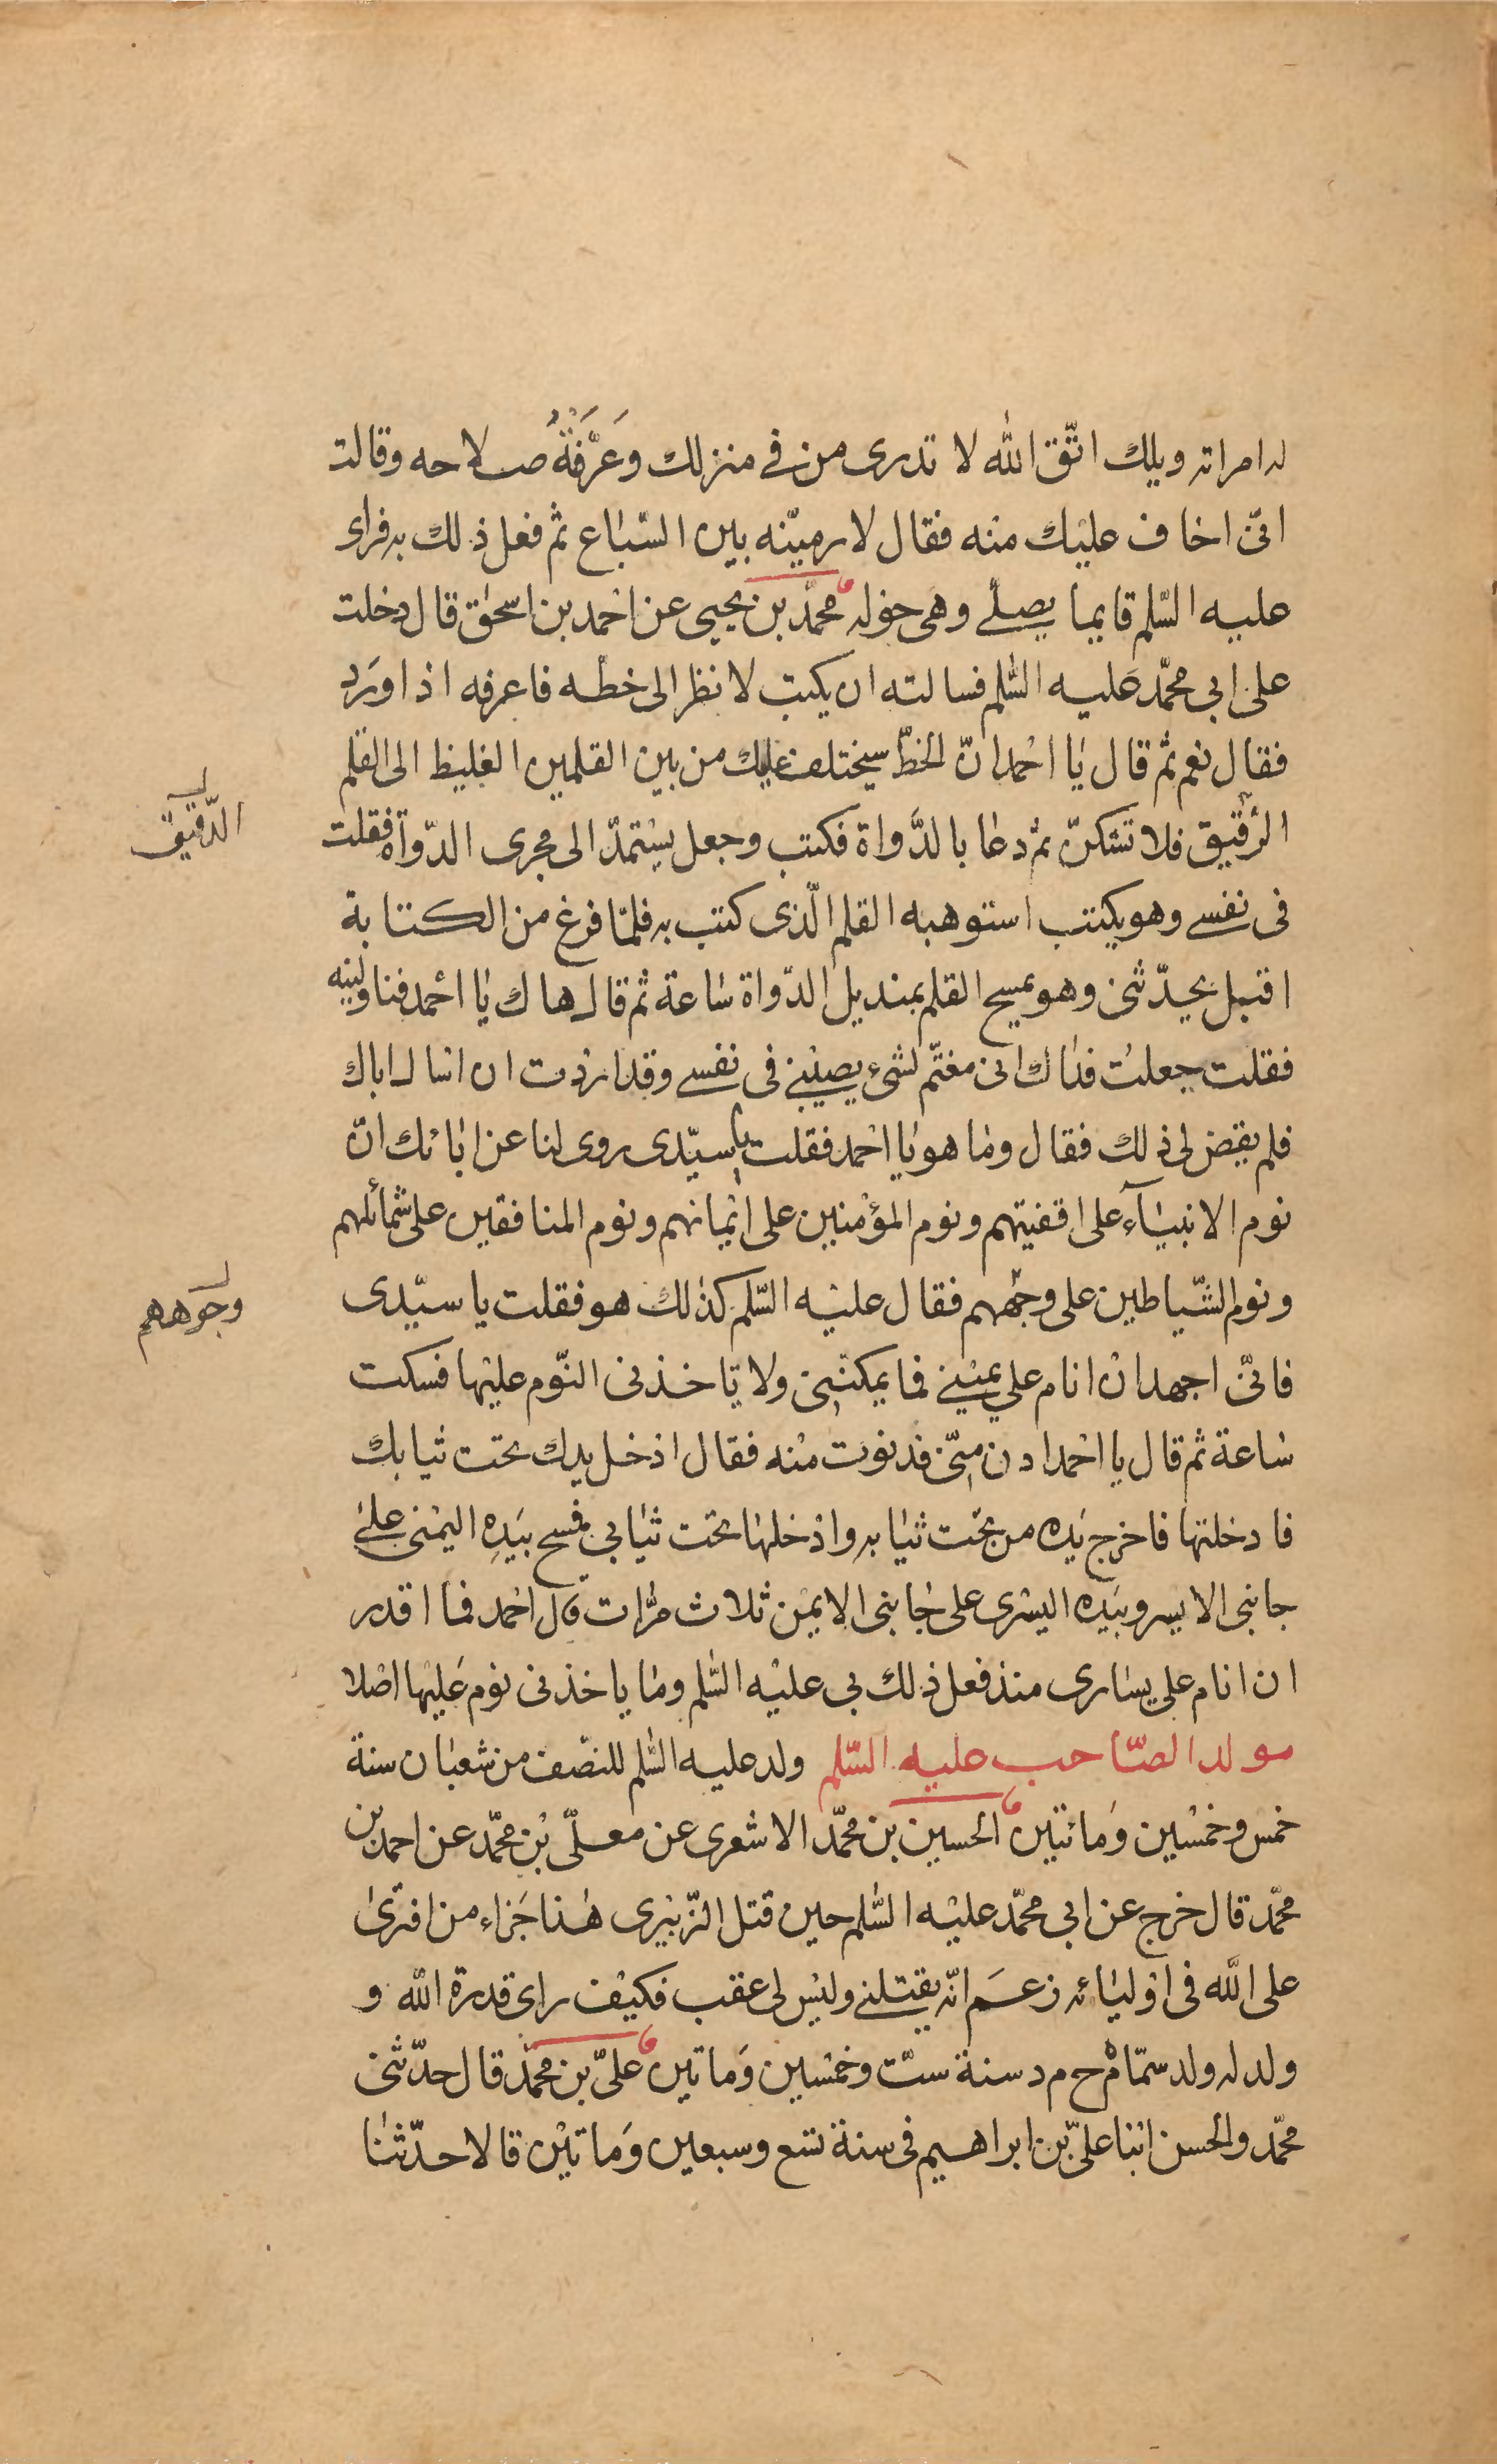 له امراته ويلك اتّق الله لا تدرى من في منزلك وعَرَّفَتْهُ صلاحه وقالت
انّى اخاف عليك منه فقال لارمينّه بين السّباع ثم فعل ذلك به فراى
عليه السّلم قايما يصلّي وهى حوله محمّد بن يحيى عن احمد بن اسحٰق قال دخلت
على ابى محمّد عَليه السّلم فسالته ان يكتب لانظر الى خطّه فاعرفه اذا ورَد
فقال نعم ثم قال يا احمد انّ الخطّ سيختلف عليك من بين القلمين الغليظ الى القلم
الرّقيق فلا تشكنّ ثم دعا بالدَّواة فكتب وجعل يستمدّ الى مجرى الدّواة فقلت
الدّقيق
فى نفسي وهو يكتب استوهبه القلم الّذى كتب به فلمّا فرغ من الكتابة
اقبل يحدّثنى وهو يمسح القلم بمنديل الدّواة سَاعة ثم قال هاك يا احمد فناولنيه
فقلت جعلت فداك انى مغتمّ لشىء يصيبني فى نفسي وقد اردت ان اسال اباك
فلم يقض لى ذلك فقال وما هو يا احمد فقلت يا سيّدى روى لنا عن ابائك انّ
نوم الانبيَآء على اقفيتهم ونوم المؤمنين على ايمانهم ونوم المنافقين على شمائلهم
ونوم الشّياطين على وجههم فقال عليه السّلم كذلك هو فقلت يا سيّدى
وجوههم
فانّى اجهد ان انام على يميني فما يمكننى ولا ياخذنى النّوم عليها فسكت
ساعة ثم قال يا احمد ادن منّى فدنوت منه فقال ادخل يدك تحت ثيابك
فادخلتها فاخرج يَده من تحت ثيابه وادخلها تحت ثيابى فمسح بيَدِه اليمنى على
جانبى الايسر وبيَده اليسرى على جانبى الايمن ثلاث مرّات قال احمد فما اقدر
ان انام على يسارى منذ فعل ذلك بى عليه السّلم وما ياخذنى نوم عَليها اصلا
مولد الصّاحب عليه السّلم ولد عليه السّلم للنصف من شعبان سنة
خمس وخمسين وَمائتين الحسين بن محمّد الاشعرى عن معلّى بن محمّد عن احمد بن
محمّد قال خرج عن ابى محمّد عليه السّلم حين قتل الزّبيرى هٰذا جَزاء من افترىٰ
على الله فى اوليائه زعَم انّه يقتلنى وليس لى عقب فكيف راى قدرة الله و
ولد له ولد سمّاه م ح م د سنة ستّ وخمسين وَماتين علىّ بن محمّد قال حدّثنى
محمّد والحسن ابنا علىّ بن ابراهيم فى سنة تسع وسبعين وَماتيْن قالا حدّثنا